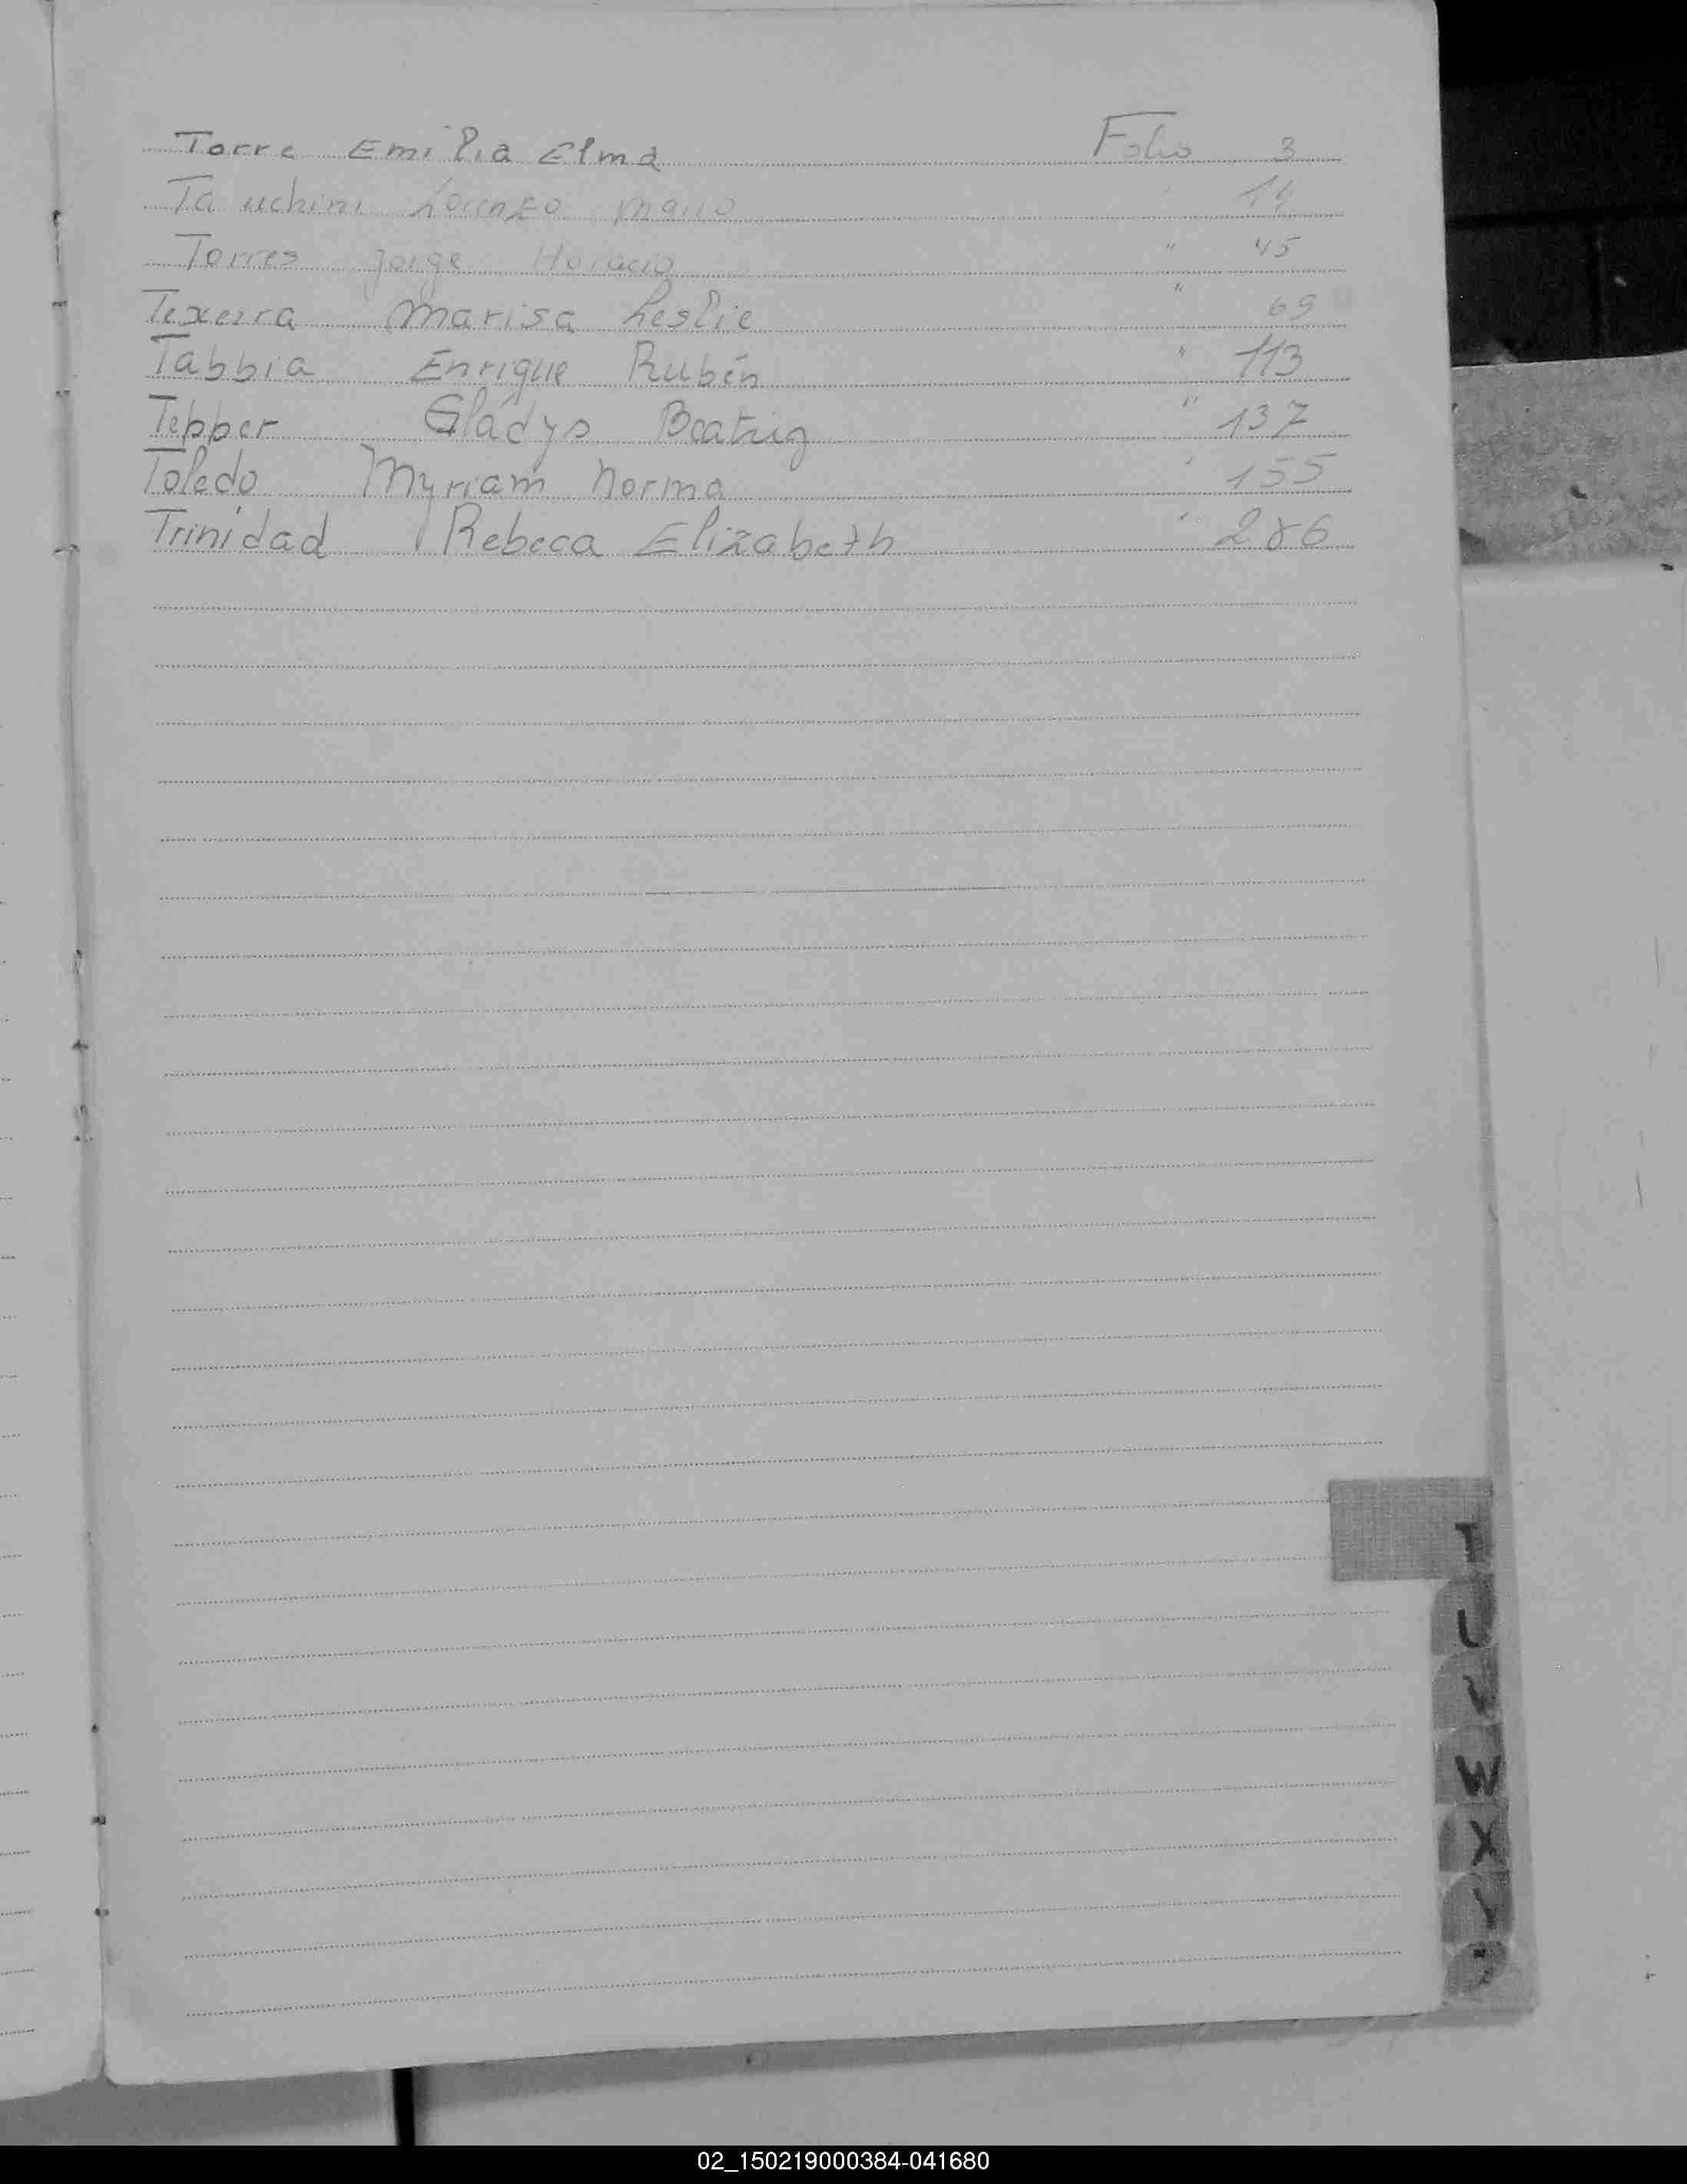 Torre Emilia Elma Folio 3
Ta uchini Lorenzo Mario
Torres Jorge Horacio " 45
Texeira Marisa Leslie " 69
Tabbia Enrique Rubén " 113
Tepper Gladys Beatriz " 137
Toledo Myriam Norma " 155
Trinidad Rebeca Elizabeth " 286
T
U
V
W
X
Y
02_150219000384-041680